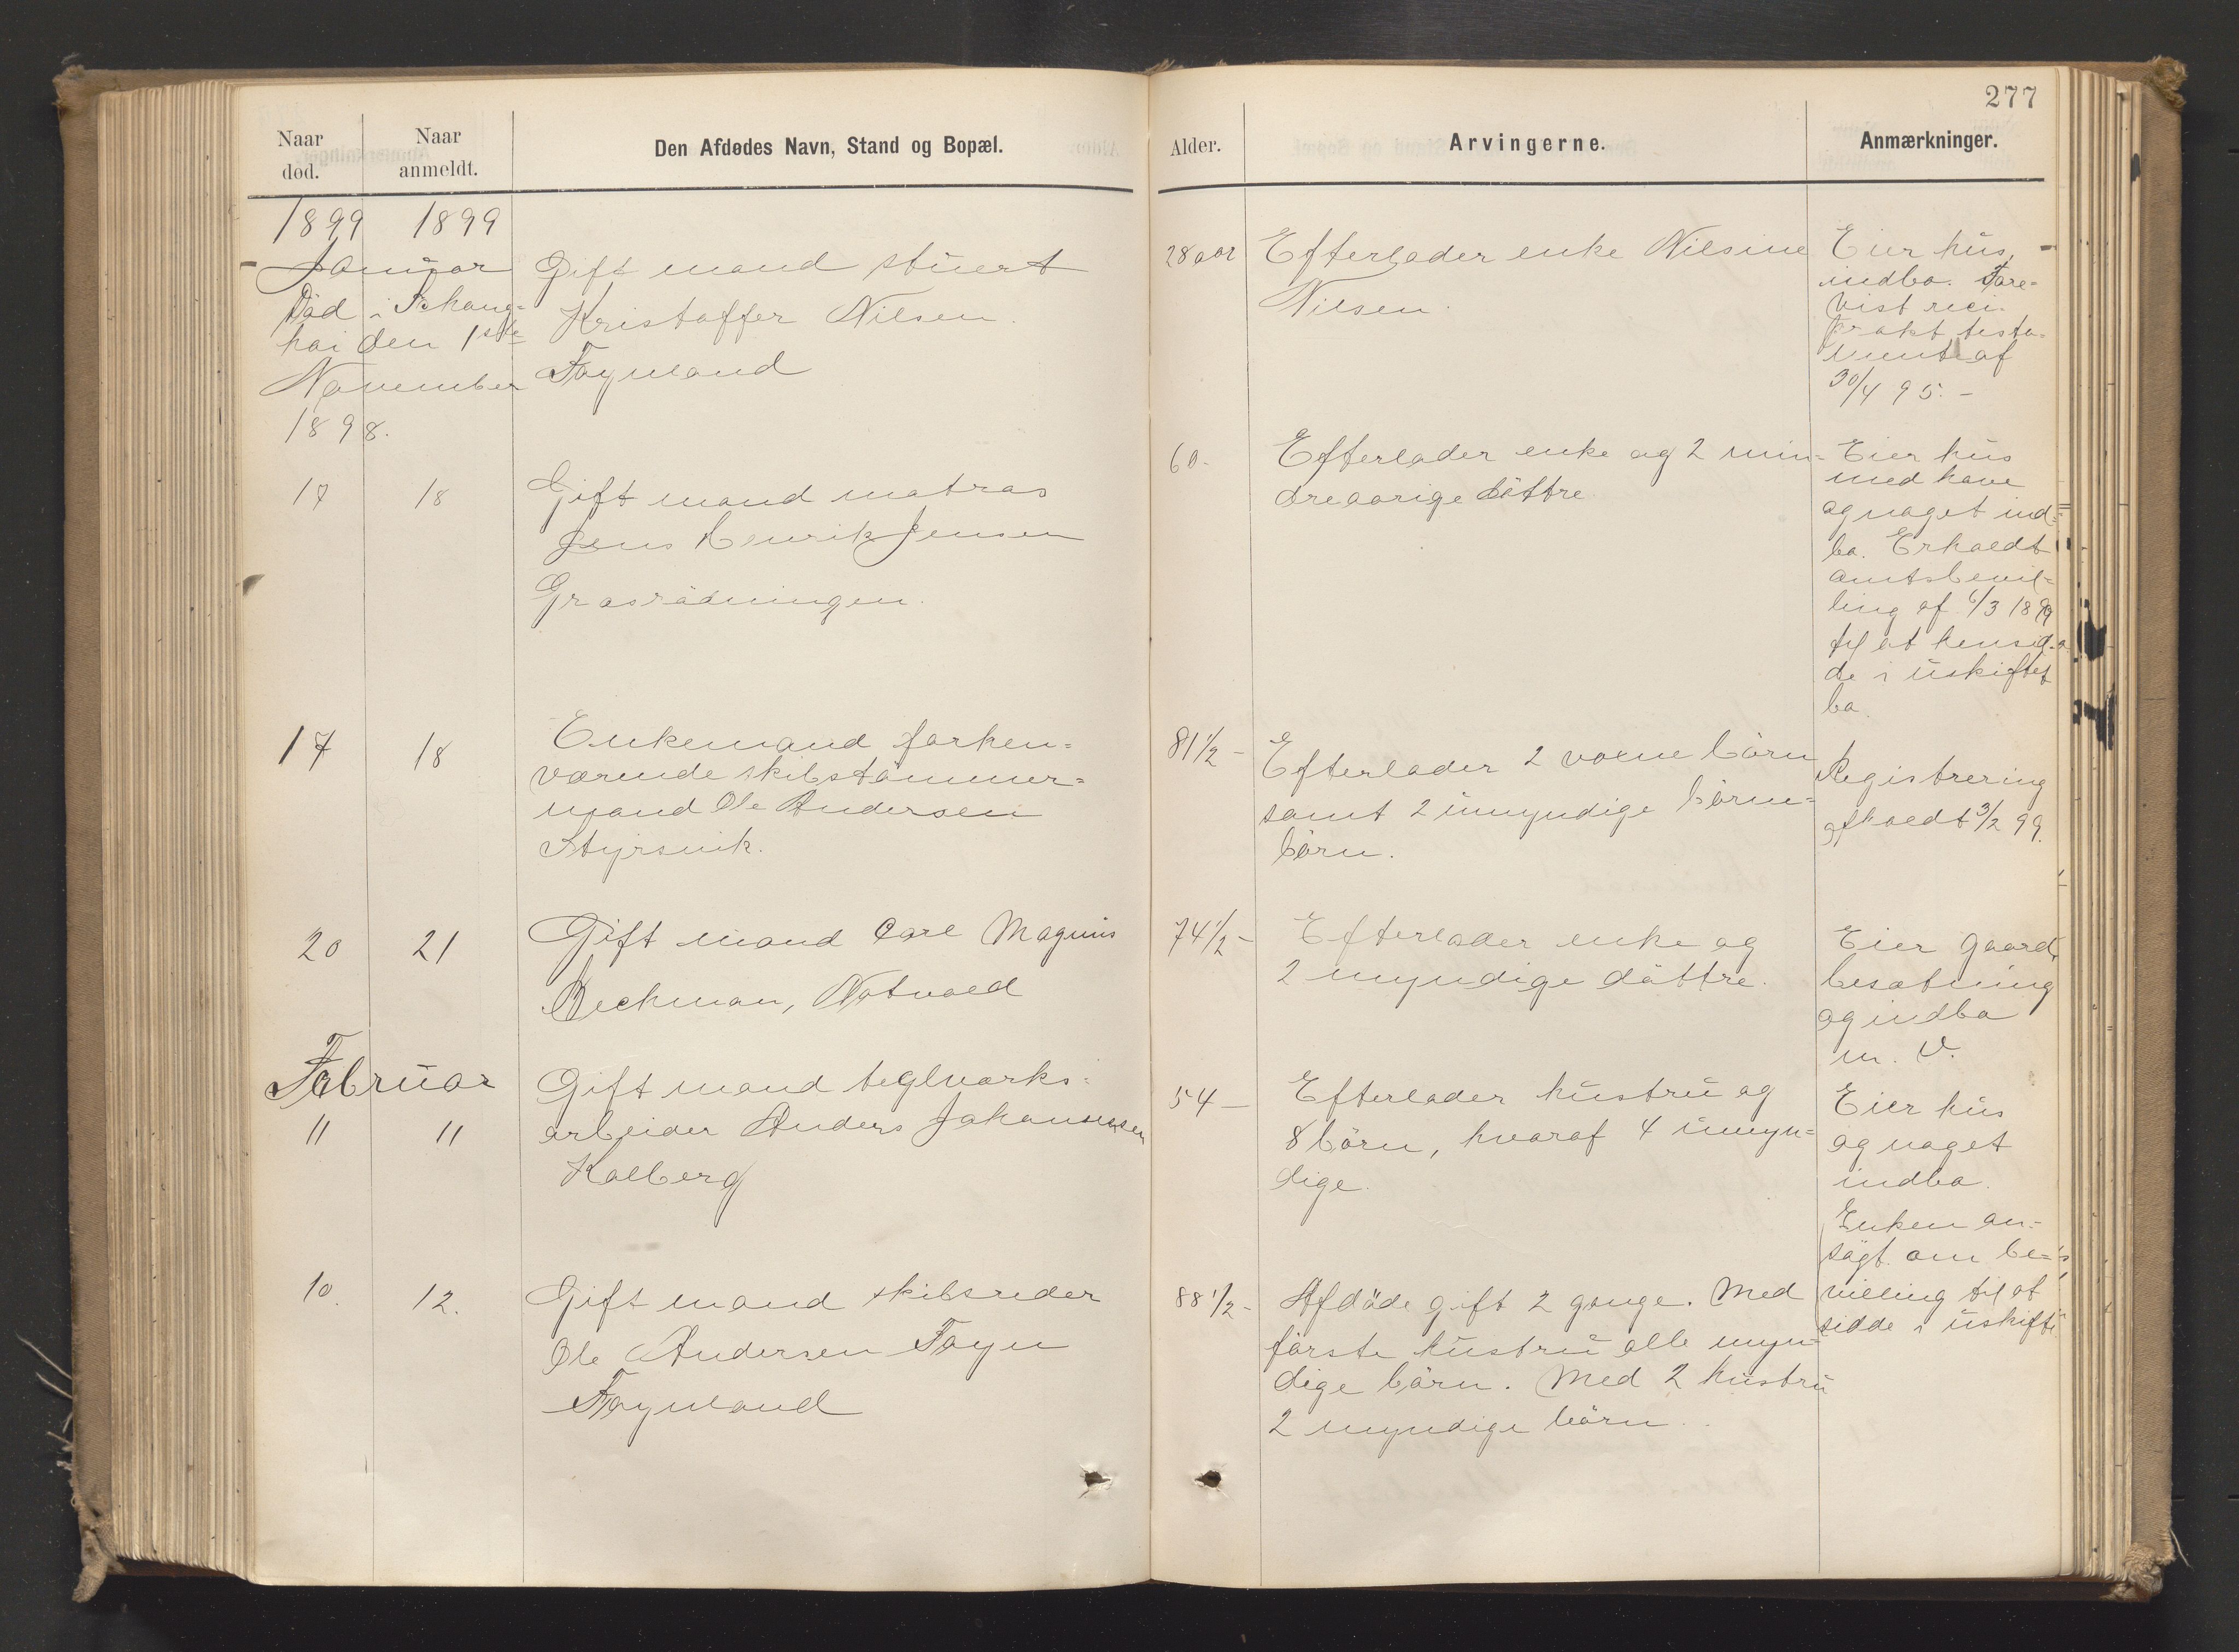 277
Naar død.
Naar anmeldt.
Den Afdødes Navn, Stand og Bopæl.
Alder.
Arvingerne.
Anmærkninger.
1899 1899
Januar
Död i Schang=
hai den 1ste
November
1898.
Gift mand stuert
Kristoffer Nilsen
Föynland
28 aar
Efterlader enke Nilsine
Nilsen.
Eier hus,
indbo. Fore-
vist reci-
prokt testa-
ment af
30/4 95. -
17 18
Gift mand matros
Jens Henrik Jensen
Græsrödningen.
60-
Efterlader enke og 2 min=
dreaarige döttre
Eier hus
med have
og noget ind=
bo. Erholdt
amtsbevil=
ling af 6/3 1899
til at hensid-
de i uskiftet
bo.
17 18
Enkemand forhen=
værende skibstömmer=
mand Ole Andersen
Styrsvik.
81 1/2 -
Efterlader 2 voxne börn
samt 2 umyndige börne=
börn.
Registrering
afholdt 3/2 99.
20 21
Gift mand Carl Magnus
Beckman, Notvold
74 1/2 -
Efterlader enke og
2 myndige döttre.
Eier gaard,
besætning
og indbo
m. v.
Februar
11 11
Gift mand teglværks-
arbeider Anders Johannessen
Kolberg
54 -
Efterlader hustru og
8 börn, hvoraf 4 umyn=
dige.
Eier hus
og noget
indbo.
Enken an-
sögt om be=
villing til at
sidde i uskifte
10. 12.
Gift mand skibsreder
Ole Andersen Föyn
Föynland
88 1/2 -
Afdöde gift 2 gange. Med
förste hustru alle myn=
dige börn. Med 2 hustru
2 myndige börn.